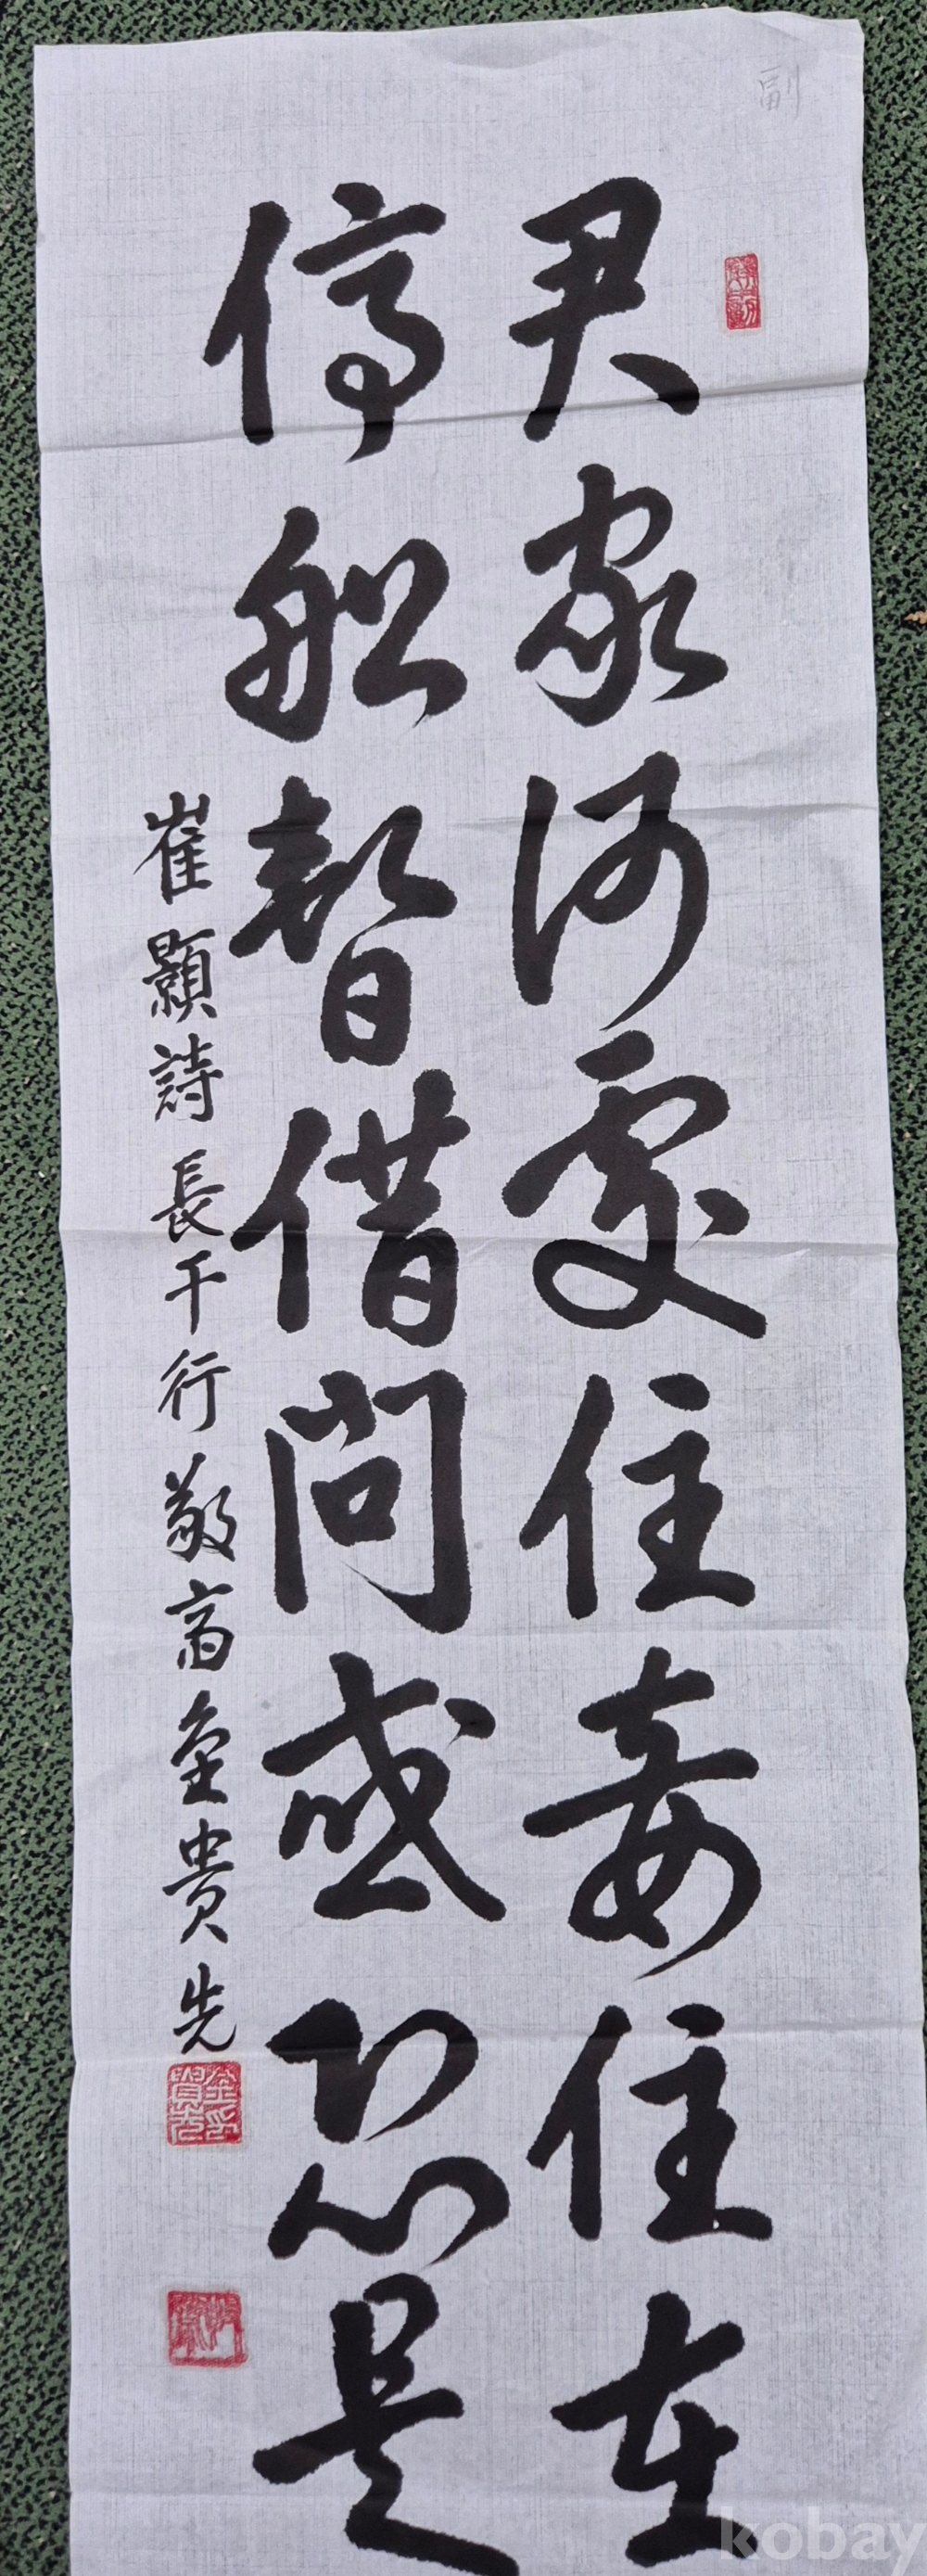 副
君家何處住妾住在
停船暫借問或恐是
崔顥詩長干行 敬齋金貴先
kobay